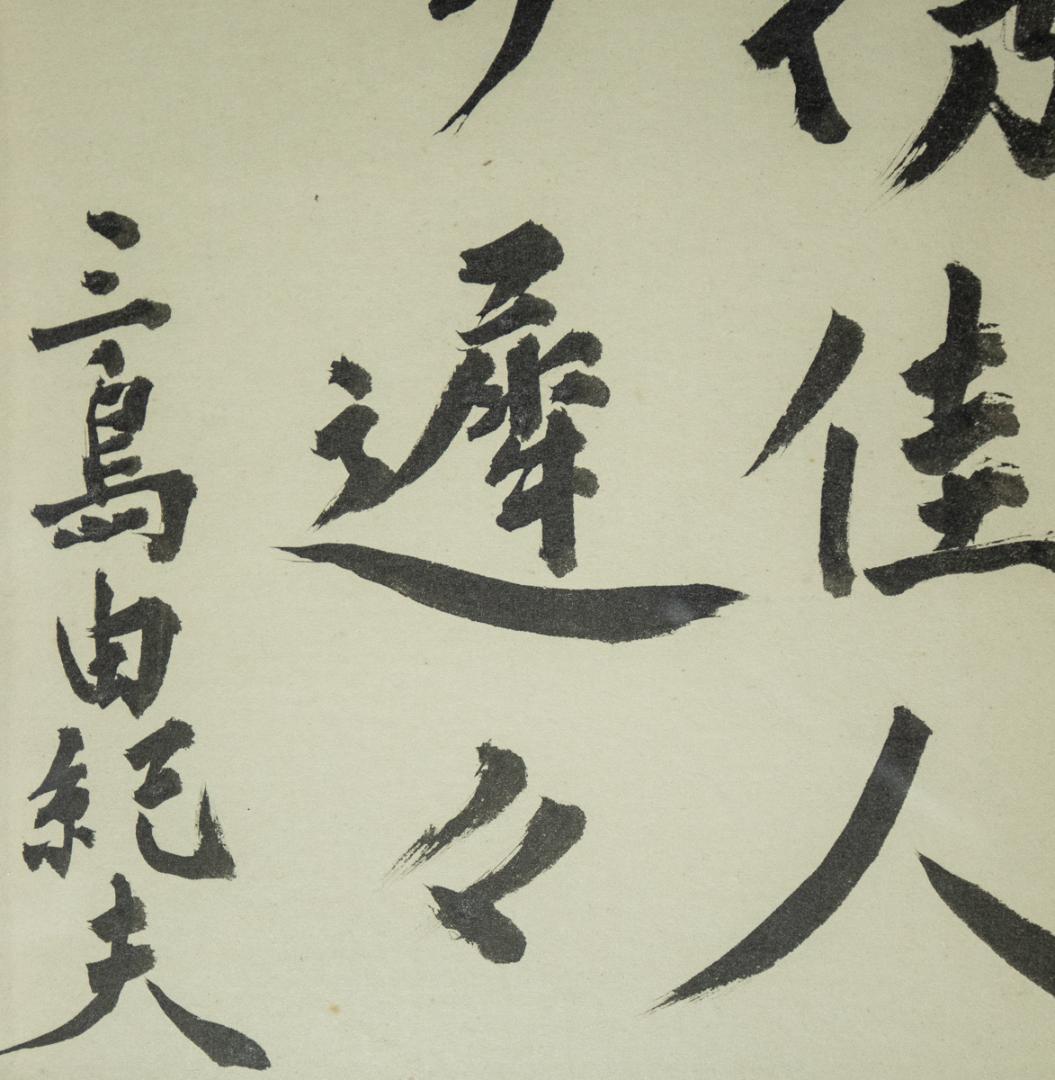 佳人
遲々
三島由紀夫